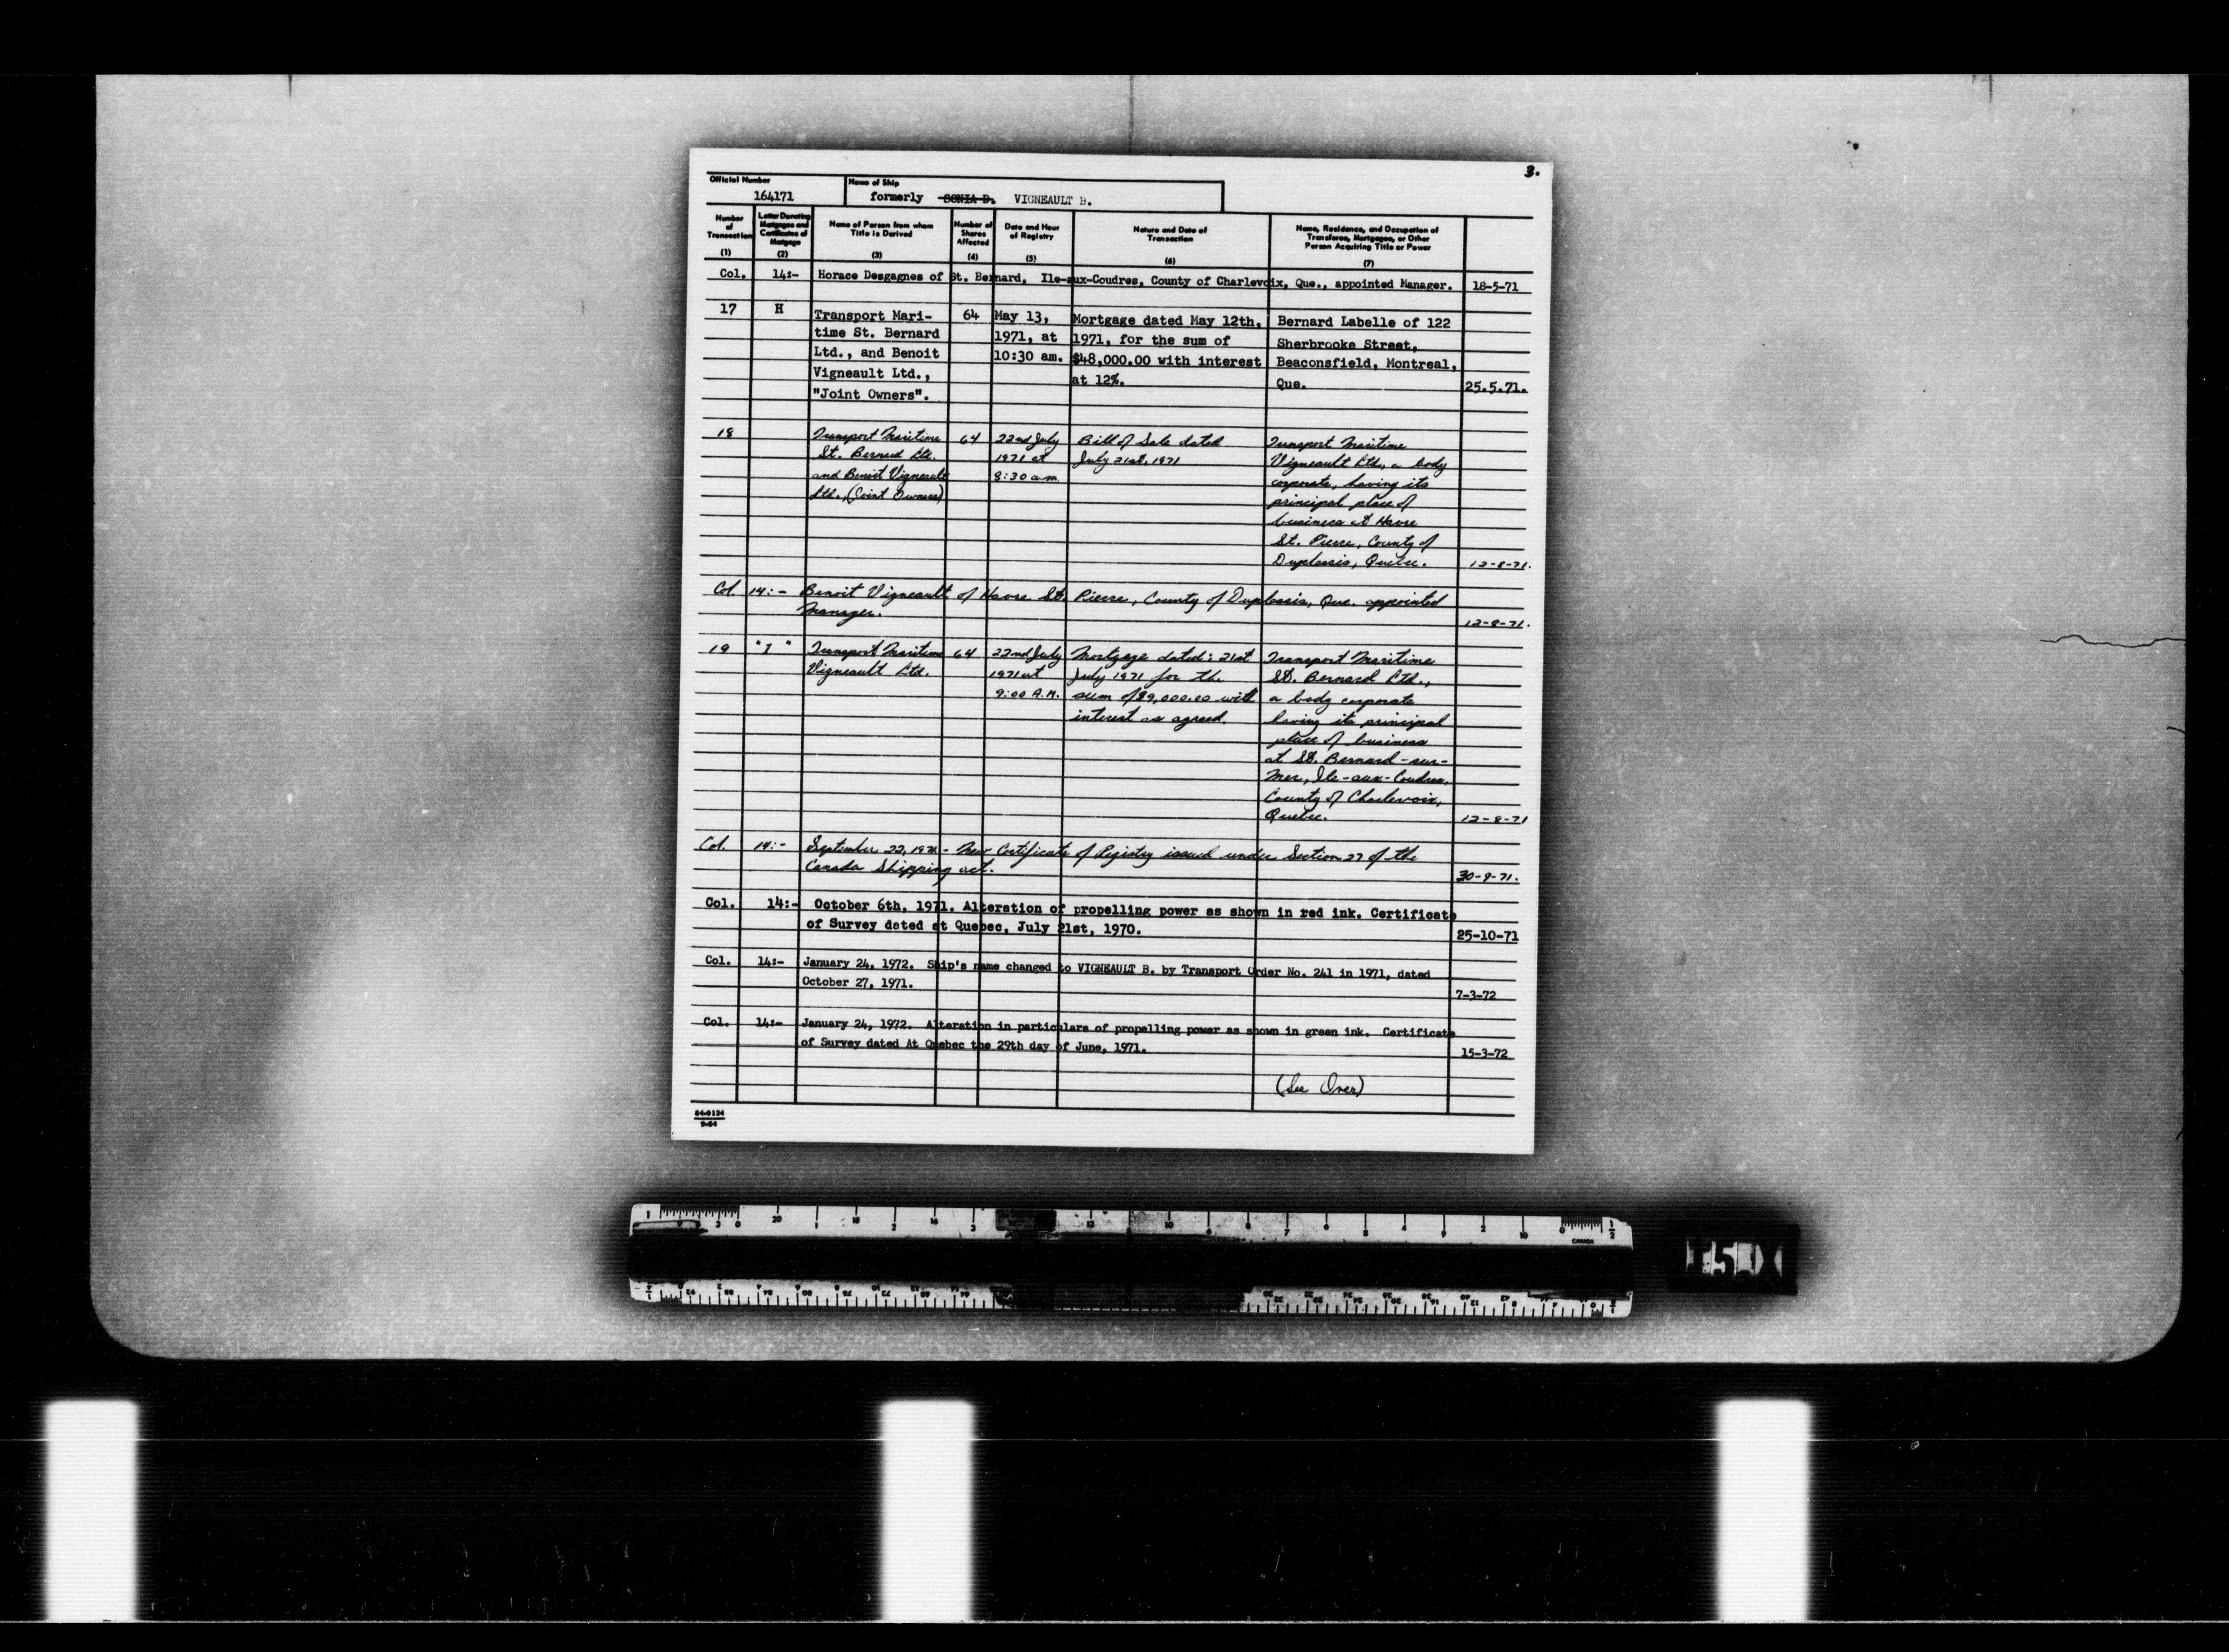 3.
Official Number
164171
Name of Ship
formerly SONIA D. VIGNEAULT B.
Number of Transaction (1)
Letter Denoting Mortgages and Certificates of Mortgage (2)
Name of Person from whom Title is Derived (3)
Number of Shares Affected (4)
Date and Hour of Registry (5)
Nature and Date of Transaction (6)
Name, Residence, and Occupation of Transferee, Mortgagee, or Other Person Acquiring Title or Power (7)
Col. 14:- Horace Desgagnes of St. Bernard, Ile-aux-Coudres, County of Charlevoix, Que., appointed Manager. 18-5-71
17 H Transport Mari- 64 May 13, Mortgage dated May 12th, Bernard Labelle of 122
time St. Bernard 1971, at 1971, for the sum of Sherbrooke Street,
Ltd., and Benoit 10:30 am. $48,000.00 with interest Beaconsfield, Montreal,
Vigneault Ltd., at 12%. Que. 25.5.71.
"Joint Owners".
18 Transport Maritime 64 22nd July Bill of Sale dated Transport Maritime
St. Bernard Ltd. 1971 at July 21st, 1971 Vigneault Ltd., a body
and Benoit Vigneault 8:30 a.m. corporate, having its
Ltd., (Joint Owners) principal place of
business at Havre
St. Pierre, County of
Duplessis, Quebec. 12-8-71.
Col. 14:- Benoit Vigneault of Havre St. Pierre, County of Duplessis, Que. appointed
Manager. 12-8-71.
19 "I" Transport Maritime 64 22nd July Mortgage dated: 21st Transport Maritime
Vigneault Ltd. 1971 at July 1971 for the St. Bernard Ltd.,
9:00 A.M. sum of $9,000.00 with a body corporate
interest as agreed. having its principal
place of business
at St. Bernard-sur-
Mer, Ile-aux-Coudres,
County of Charlevoix,
Quebec. 12-8-71
Col. 14:- September 22, 1971 - New Certificate of Registry issued under Section 27 of the
Canada Shipping act. 30-9-71.
Col. 14:- October 6th, 1971. Alteration of propelling power as shown in red ink. Certificate
of Survey dated at Quebec, July 21st, 1970. 25-10-71
Col. 14:- January 24, 1972. Ship's name changed to VIGNEAULT B. by Transport Order No. 241 in 1971, dated
October 27, 1971. 7-3-72
Col. 14:- January 24, 1972. Alteration in particulars of propelling power as shown in green ink. Certificate
of Survey dated At Quebec the 29th day of June, 1971. 15-3-72
(See Over)
84-0124
9-64
CANADA